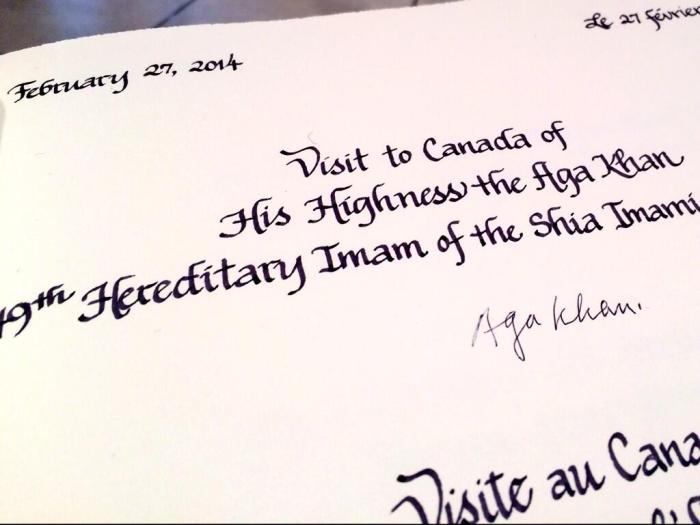 February 27, 2014
Le 27 février
Visit to Canada of
His Highness the Aga Khan
49th Hereditary Imam of the Shia Imami
Aga Khan.
Visite au Cana